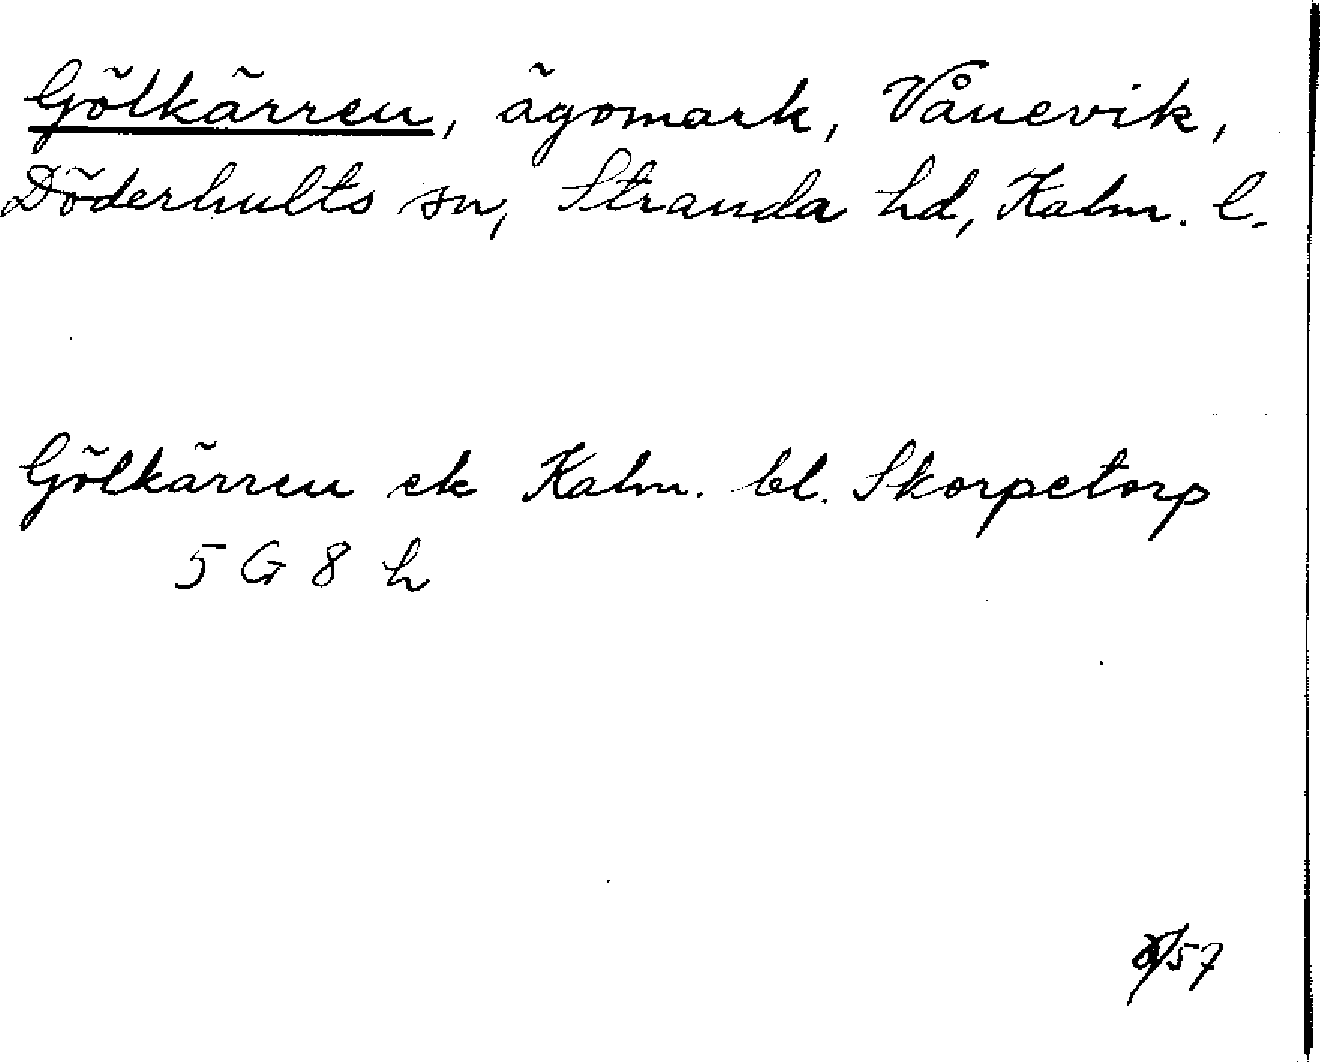 Gölkärren, ägomark, Vånevik,
Döderhults sn, Stranda hd, Kalm. l.
Gölkärren ek Kalm. bl. Skorpetorp
5 G 8 h
/57